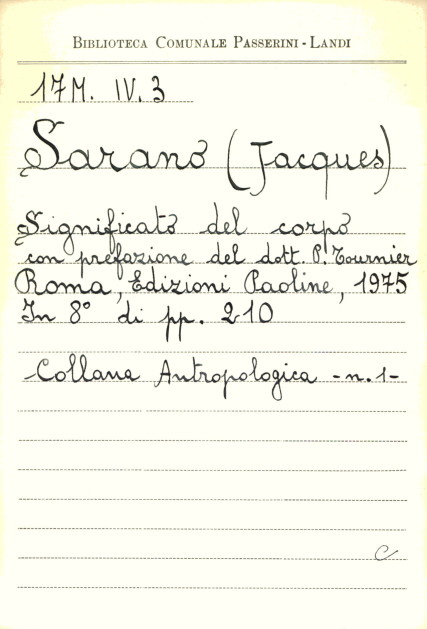 BIBLIOTECA COMUNALE PASSERINI - LANDI
17M. IV. 3
Sarano (Jacques)
Significato del corpo
con prefazione del dott. P. Tournier
Roma, Edizioni Paoline, 1975
In 8° di pp. 210
Collana Antropologica - n. 1 -
C